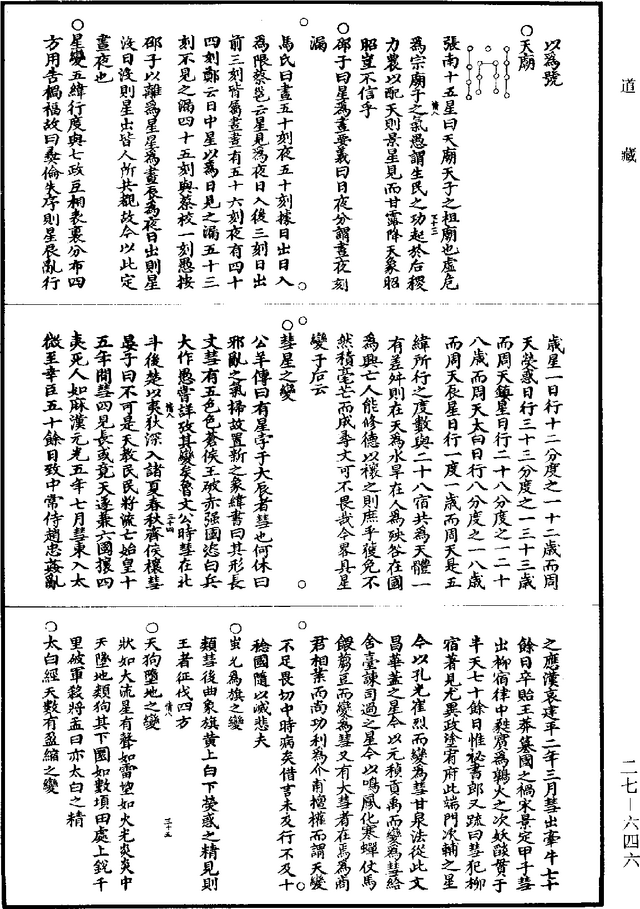 道藏
以爲號
○天廟
張南十五星曰天廟天子之祖廟也虛危
爲宗廟子之氣愚謂生民之功起於后稷
力農以配天則景星見而甘露降天象昭
昭豈不信乎
○邵子曰星爲晝要義曰日夜分謂晝夜刻
漏
馬氏曰晝五十刻夜五十刻據日出日入
爲限蔡邕云星見爲夜日入後三刻日出
前三刻皆屬晝晝有五十六刻夜有四十
四刻鄭云日中星以爲日見之漏五十三
刻不見之漏四十五刻與蔡校一刻愚按
邵子以離爲星星爲晝辰爲夜日出則星
沒日沒則星出皆人所共觀故今以此定
晝夜也
○星變五緯行度與七政互相表裏分布四
方用告禍福故曰彝倫失序則星辰亂行
歲星一日行十二分度之一十二歲而周
天熒惑日行三十三分度之一三十三歲
而周天鎮星日行二十八分度之一二十
八歲而周天太白日行八分度之一八歲
而周天辰星日行一度一歲而周天是五
緯所行之度數與二十八宿共爲天體一
有差舛則在天爲水旱在人爲殃咎在國
爲興亡人能修德以禳之則庶乎獲免不
然積毫芒而成尋丈可不畏哉今畧具星
變于后云
○彗星之變
公羊傳曰有星孛于大辰者彗也何休曰
邪亂之氣掃故置新之象緯書曰其形長
文彗有五色色蒼侯王破赤强國恣白兵
大作愚嘗詳攷其變矣魯文公時彗在北
斗後楚以夷狄深入諸夏春秋齊侯禳彗
晏子曰不可是天教民民將流亡始皇十
五年間彗四見長或竟天遂兼六國攘四
夷死人如麻漢元光五年七月彗東入太
微至幸臣五十餘日致中常侍趙忠姦亂
之應漢哀建平二年三月彗出牽牛七十
餘日卒貽王莽墓國之禍宋景定甲子彗
出柳宿律中蕤賓爲鶉火之次妖燄貫于
半天七十餘日惟祕書郎又疏曰彗犯柳
宿著見尤異政塗宥府此端門次輔之星
今以孔光崔烈而變爲彗甘泉法從此文
昌華蓋之星今以元稹貢禹而變爲彗給
舍臺諫司過之星今以鳴風化寒蟬仗馬
餵芻豆而變爲彗又有大彗者在焉爲商
君相業而尚功利爲介甫擅權而謂天變
不足畏切中時病矣借言未及行不及十
稔國隨以滅悲夫
○蚩尤爲旗之變
類彗後曲象旗黃上白下熒惑之精見則
王者征伐四方
○天狗墮地之變
狀如大流星有聲如雷望如火光炎炎中
天墜地類狗其下圜如數項田處上銳千
里破軍殺將孟曰亦太白之精
○太白經天數有盈縮之變
二七—六四六